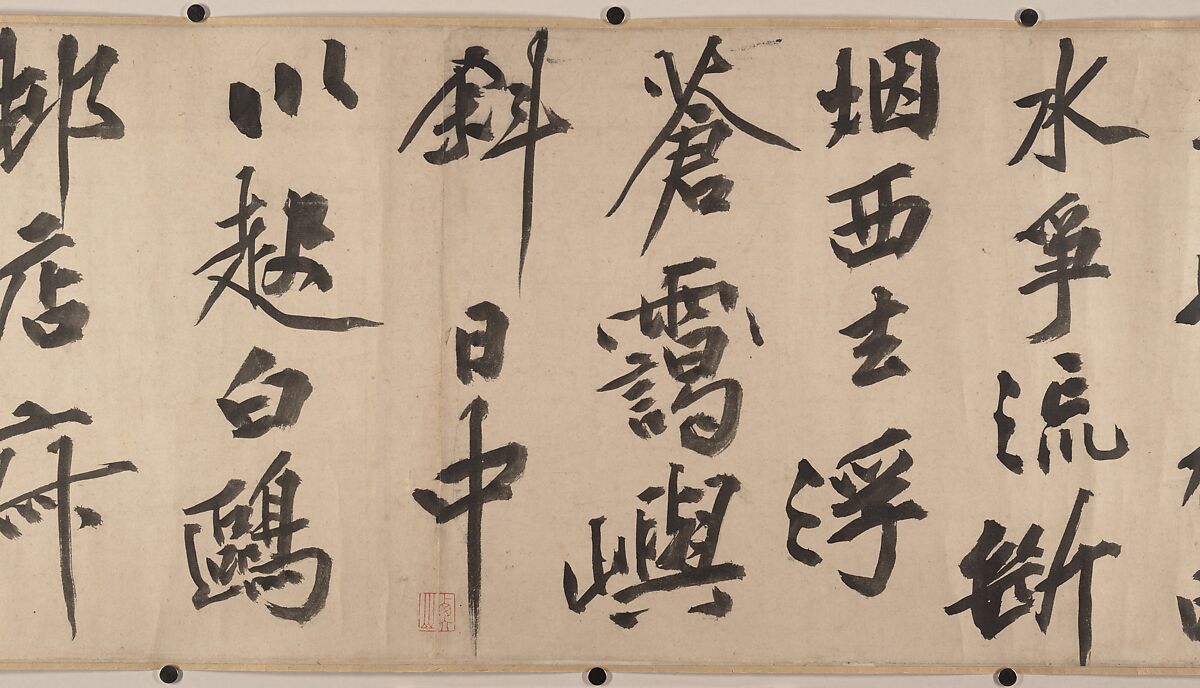 水爭流斷
烟西去浮
蒼靄嶼
斜日中
川趂白鷗
邨店